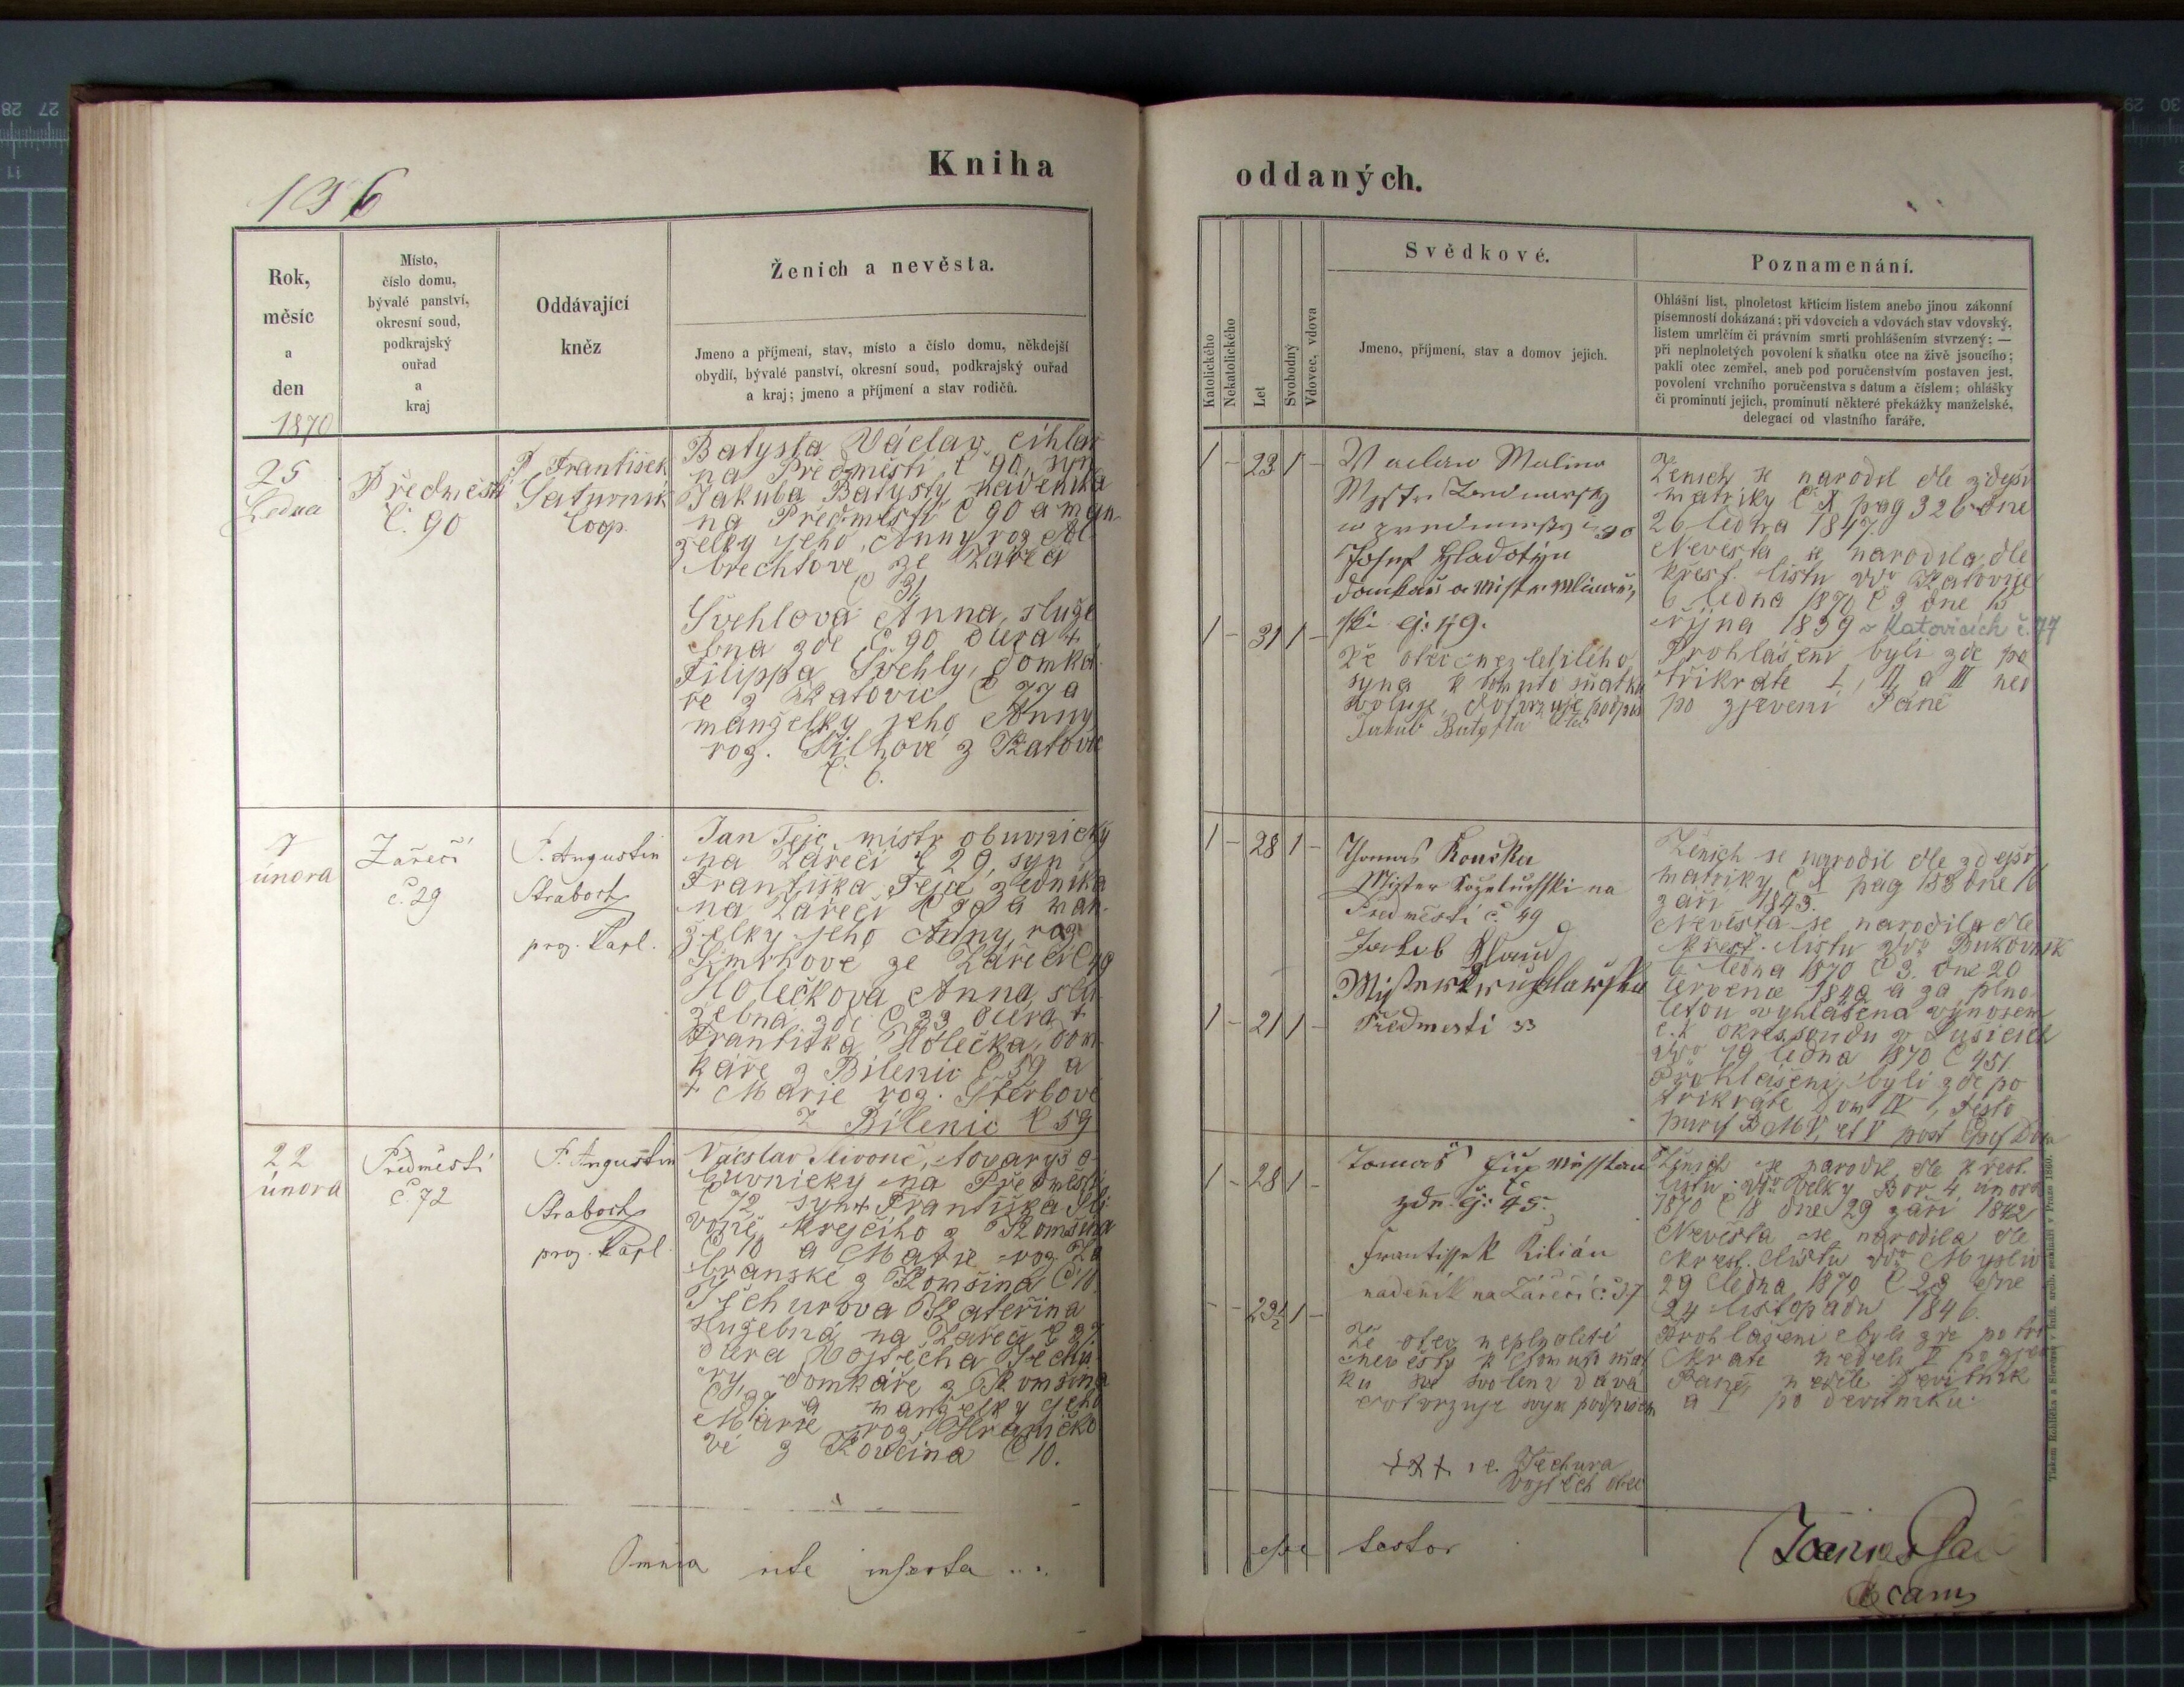 Kniha
oddaných.
136
Rok,
měsíc
a
den
1870
Místo,
číslo domu,
bývalé panství,
okresní soud,
podkrajský
ouřad
a
kraj
Oddávající
kněz
Ženich a nevěsta.
Jmeno a příjmení, stav, místo a číslo domu, někdejší
obydlí, bývalé panství, okresní soud, podkrajský ouřad
a kraj; jmeno a příjmení a stav rodičů.
Katolického
Nekatolického
Let
Svobodný
Vdovec, vdova
Svědkové.
Jmeno, příjmení, stav a domov jejich.
Poznamenání.
Ohlášní list, plnoletost křticím listem anebo jinou zákonní
písemností dokázaná; při vdovcích a vdovách stav vdovský,
listem umrlčím či právním smrti prohlášením stvrzený; —
při neplnoletých povolení k sňatku otce na živě jsoucího;
pakli otec zemřel, aneb pod poručenstvím postaven jest,
povolení vrchního poručenstva s datum a číslem; ohlášky
či prominutí jejich, prominutí některé překážky manželské,
delegací od vlastního faráře.
25
Ledna
Předměstí
č. 90
P. František
Saturník
Coop.
Batysta Václav, cihlář
na Předměstí č 90, syn
Jakuba Batysty nádeníka
na Předměstí č 90 a man
želky jeho, Anny roz
brechtové ze Zářečí
č 31
Švehlová Anna, služe
bná zde č 90 dcera +
Filippa Švehly, domká
ře z Katovic č 77 a
manželky jeho Anny
roz. Šilhové z Katovic
č. 6.
1 - 23 1 -
1 - 31 1 -
Waclaw Malina
Josef Hladotýn
ski č: 49.
syna k tomuto sňatku
svoluje, potvrzuje podpis
Jakub Batysta otec
Ženich se narodil dle zdejší
matriky č X pag 326 dne
26 ledna 1847.
Nevěsta se narodila dle
křest. listu ddo Katovice
6 ledna 1870 č 3 dne 15
října 1839 v Katovicích č. 77
Prohlášeni byli zde po
třikráte I, II, a III ned
po zjevení Páně
7
února
Zářečí
č. 29
P. Augustin
Straboch
prov. Kapl.
Jan Fejc, mistr obuvnický
na Zářečí č 29, syn
Františka Fejce zedníka
na Zářečí č 29 a man
želky jeho Anny, roz
ze Zářečí č 19
Holečkova Anna, slu
žebná zde č 33 dcera +
Františka Holečka, dom
káře z Bílenic č 59 a
+ Marie roz. Štěrbové
z Bílenic č 59
1 - 28 1 -
1 - 21 1 -
Thomas Kouřka
Mister koželuchski na
Předměstí č. 49
Jakub
Předmestí 33
Ženich se narodil dle zdejší
matriky č X pag 183 dne 16
září 1843.
Nevěsta se narodila dle
křest. listu ddo Bukovník
6 ledna 1870 č 3. dne 20
července 1848 a za plno
letou vyhlášena výnosem
c.k okres. soudu v Sušicích
ddo 19 ledna 1870 č 451
Prohlášeni byli zde po
třikráte Dom IV, Festo
purif B M V, et V post Epif Dom
22
února
Předměstí
č. 72
P. Augustin
Straboch
prov. Kapl.
Václav Slivoně, tovaryš o
buvnický na Předměstí
č 72, syn + Františka Sli
voně, krejčího z Komšína
č 10 a Marie roz. Za
branské z Komšína č 10.
Těchurova Kateřina
služebná na Zářečí č 37
dcera Vojtěcha Těchu
ry, domkáře z Komšína
č 37 a manželky jeho
Marie roz. Hraničko
vé z Kovčína č 10.
1 - 28 1 -
- - 23½ 1 -
Tomaš
zde č: 45.
Frantissek Kilián
nádeník na Zářečí č. 37
Že otec neplnoleté
nevěsty k tomuto sňat
ku své svolení dává
potvrzuje svým podpisem
+++ Těchura
Vojtěch otec
Ženich se narodil dle křest.
listu ddo Velký Bor 4 února
1870 č 18 dne 29 září 1842
Nevěsta se narodila dle
křest. listu ddo Myslív
29 ledna 1870 č 28 dne
24 listopadu 1846.
Prohlášeni byli zde po tři
kráte neděli V po zjev
Páně, neděle Devítník
a I po devítníku.
Omnia rite inserta ..
esse testor
Tiskem Rohlíčka a Sieverse v kníž. arcib. semináři v Praze 1860.